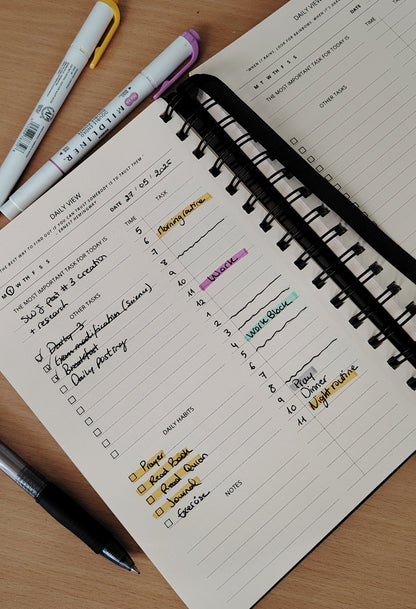 DAILY VIEW
THE BEST WAY TO FIND OUT IF YOU CAN TRUST SOMEBODY IS TO TRUST THEM
- ERNEST HEMINGWAY
M T W T H F S S
DATE 27 / 05 / 2025
THE MOST IMPORTANT TASK FOR TODAY IS
post # 3 creation
+ research
OTHER TASKS
Breakfast
Daily posting
DAILY HABITS
Prayer
Read Book
Read Quran
Journal
Exercise
TIME TASK
5 Morning routine
6
7
8
9 Work
10
11
12
1
2
3 Work Block
4
5
6
7
8 Pray
9 Dinner
10 Night routine
11
NOTES
MILDLINER
DAILY VIEW
DATE
M T W T H F S S
TIME
TASK
THE MOST IMPORTANT TASK FOR TODAY IS
OTHER TASKS